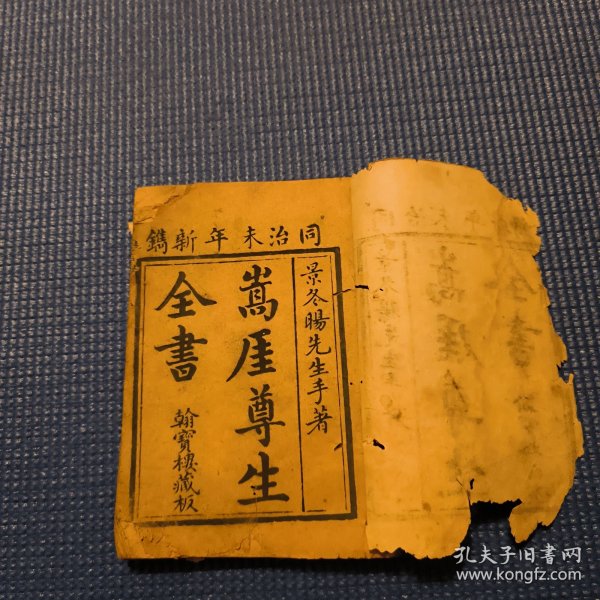 同治未年新鐫
景冬暘先生手著
嵩厓尊生
全書
翰寶樓藏板
孔夫子旧书网
www.kongfz.com